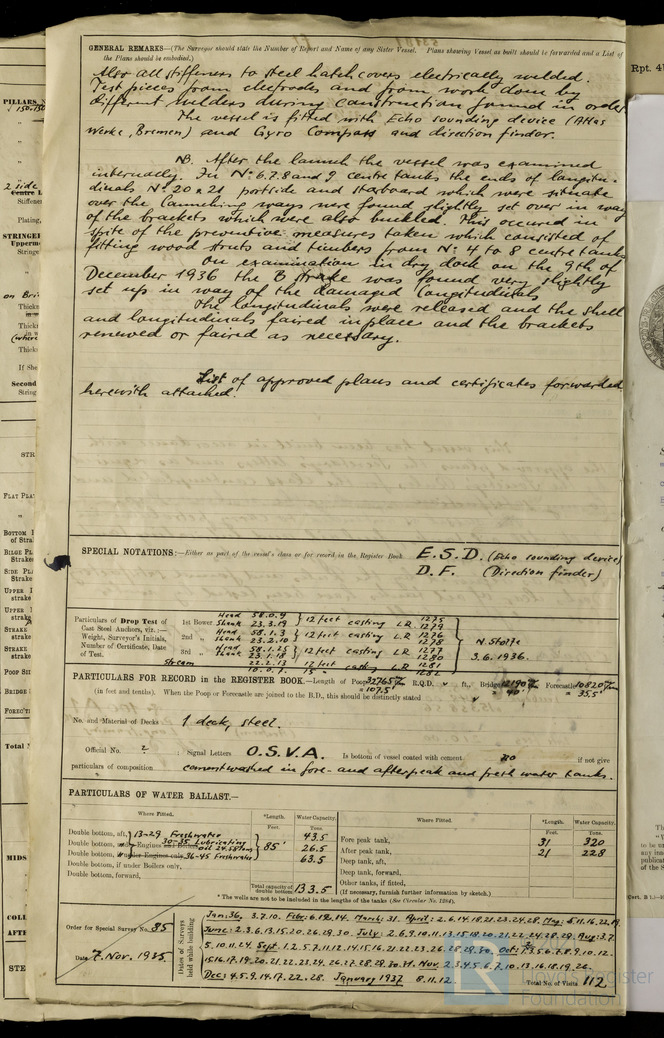 GENERAL REMARKS—(The Surveyor should state the Number of Report and Name of any Sister Vessel. Plans showing Vessel as built should be forwarded and a List of
the Plans should be embodied.)
Also all stiffeners to steel hatch covers electrically welded.
Test pieces from electrodes and from work done by
different welders during construction found in order.
The vessel is fitted with Echo sounding device (Atlas
Werke, Bremen) and Gyro Compass and direction finder.
NB. After the launch the vessel was examined
internally. In Nº 6.7.8 and 9 centre tanks the ends of longitu-
dinals Nº 20 & 21 portside and starboard which were situate
over the launching ways were found slightly set over in way
of the brackets which were also buckled. This occured in
spite of the preventive measures taken which consisted of
fitting wood struts and timbers from Nº 4 to 8 centre tanks
On examination in dry dock on the 9th of
December 1936 the B strake was found very slightly
set up in way of the damaged longitudinals
The longitudinals were released and the shell
and longitudinals faired in place and the brackets
renewed or faired as necessary.
List of approved plans and certificates forwarded
herewith attached.
SPECIAL NOTATIONS:—Either as part of the vessel's class or for record in the Register Book E.S.D. (Echo sounding device)
D.F. (Direction finder)
Particulars of Drop Test of
Cast Steel Anchors, viz.:—
Weight, Surveyor's Initials,
Number of Certificate, Date
of Test.
1st Bower Head 58.0.9
Shank 23.3.19 12 feet casting L.R. 1275
1279
2nd " Head 58.1.3
Shank 23.2.10 12 feet casting L.R. 1276
1278
3rd " Head 58.1.25
Shank 23.1.18 12 feet casting L.R. 1277
1280
Stream 22.2.13
10.0.7 12 feet
15 " casting L.R. 1281
1282
N. Stolfe
3.6.1936.
PARTICULARS FOR RECORD in the REGISTER BOOK.—Length of Poop 32765 m/m R.Q.D. ft., Bridge 12190 m/m Forecastle 10820 m/m
= 107.5' = 40' = 35.5'
(in feet and tenths). When the Poop or Forecastle are joined to the B.D., this should be distinctly stated
No. and Material of Decks 1 deck, steel.
Official No. ; Signal Letters O.S.V.A. Is bottom of vessel coated with cement no if not give
particulars of composition cementwashed in fore- and afterpeak and fresh water tanks.
PARTICULARS OF WATER BALLAST.—
Where Fitted. *Length. Water Capacity. Where Fitted. *Length. Water Capacity.
Feet. Tons. Feet. Tons.
Double bottom, aft, 13-29 Freshwater 43.5
Double bottom, under Engines and Boilers, 30-35 Lubricating oil 85' 26.5
Double bottom, under Engines only, 36-45 Freshwater 63.5
Double bottom, if under Boilers only,
Double bottom, forward,
Total capacity of double bottom 133.5
Fore peak tank, 31 320
After peak tank, 21 228
Deep tank, aft,
Deep tank, forward,
Other tanks, if fitted,
(If necessary, furnish further information by sketch.)
* The wells are not to be included in the lengths of the tanks (See Circular No. 1284).
Order for Special Survey No. 85
Date 7. Nov. 1935
Dates of Surveys held while building
Jan: 36. 3.7.10. Febr: 6.12.14. March: 31. April: 2.6.14.18.21.23.24.28. May:
June: 2.3.6.13.15.20.26.29.30. July: 2.6.9.10.11.13.15.18.20.21.22.24.28.29. Aug: 2.7.
5.10.11.24. Sept. 1.2.5.7.11.12.14.15.16.21.22.23.26.28. Oct:
15.16.17.19.20.21.22.23.24.26.27.28. Nov. 2.3.4.5.6.7.10.13.16.18.19.26.
Dec: 4.5.9.14.17.22.28. January 1937 8.11.12.
Total No. of Visits 112
Rpt. 4
PILLARS
STRINGER
© 2021
Lloyd's Register
Foundation